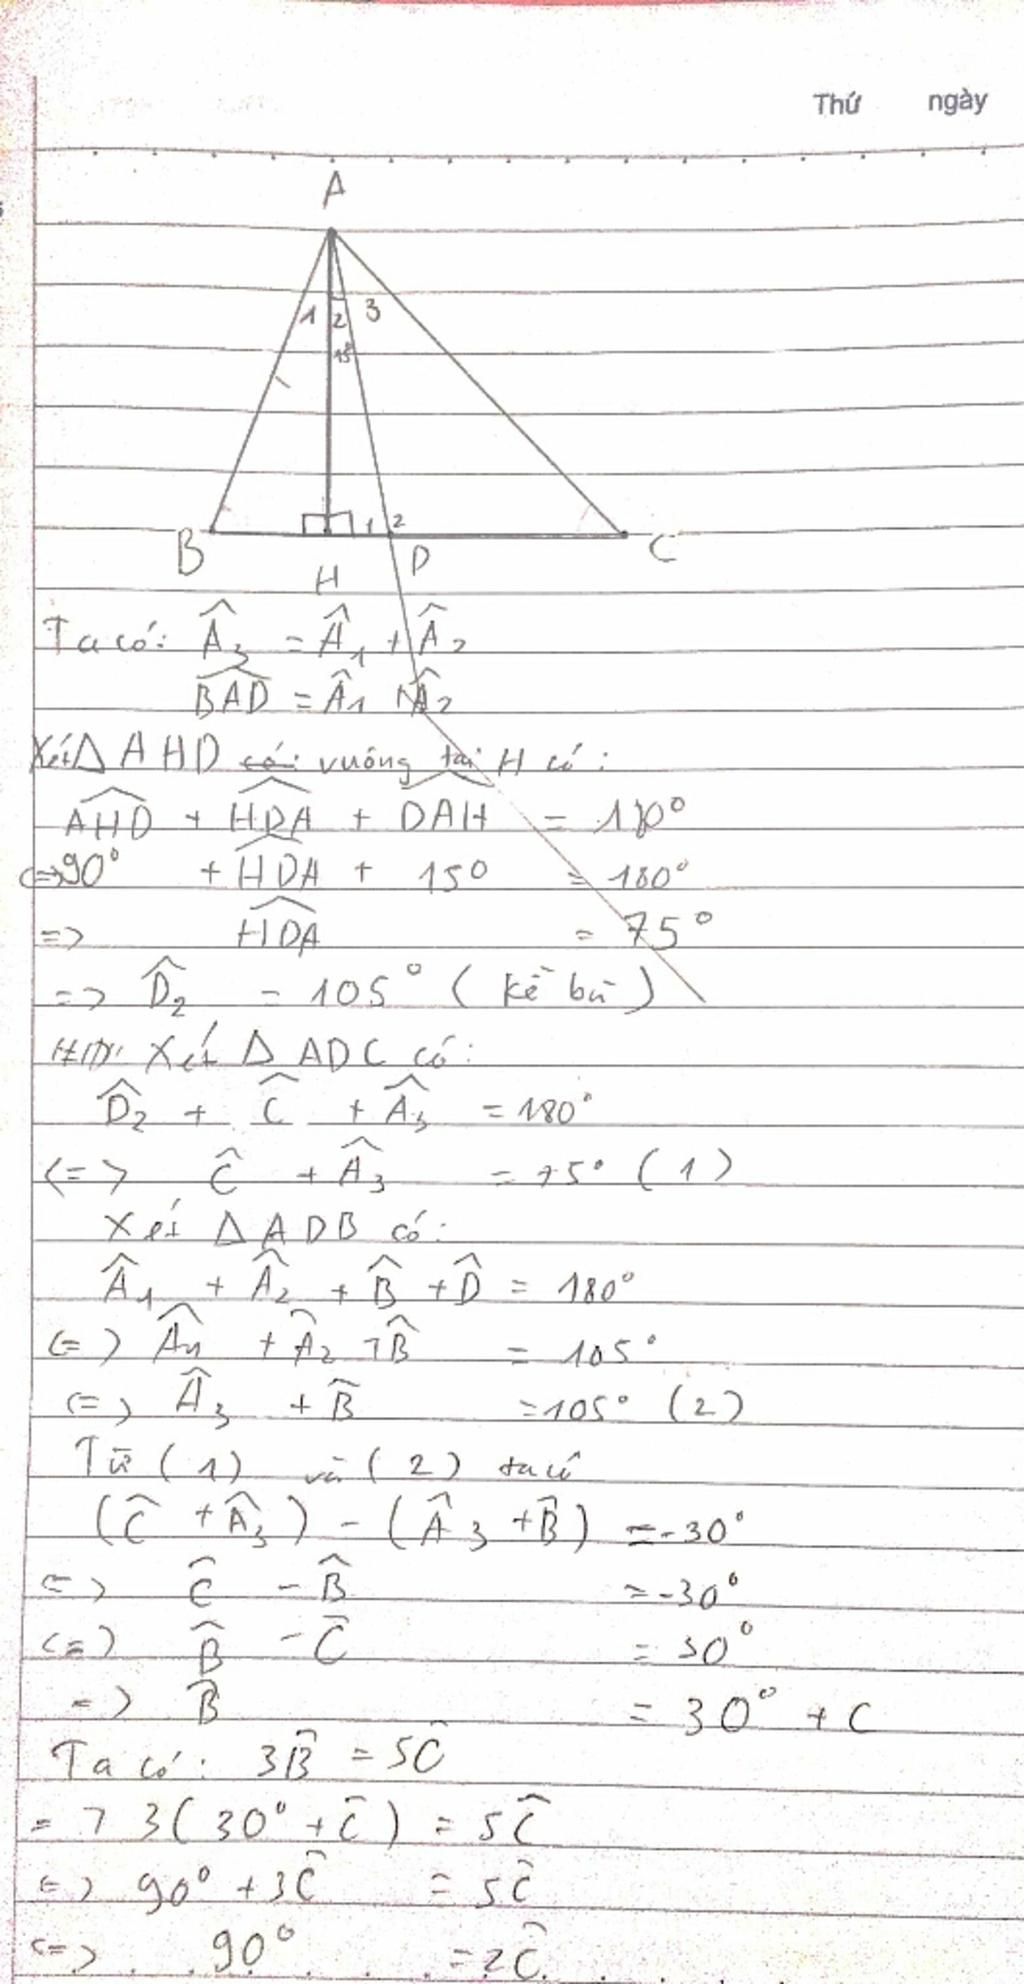 Thứ ngày
A
1 2 3
15°
1 2
B H D C
Ta có: Â₃ = Â₁ + Â₂
BAD = Â₁ + Â₂
Xét Δ AHD có: vuông tại H có:
AHD + HDA + DAH = 180°
<=> 90° + HDA + 150 = 180°
=> HDA = 75°
=> D̂₂ = 105° (kề bù)
Xét Δ ADC có:
D̂₂ + Ĉ + Â₃ = 180°
<=> Ĉ + Â₃ = 75° (1)
Xét Δ ADB có:
Â₁ + Â₂ + B̂ + D̂ = 180°
<=> Â₁ + Â₂ + B̂ = 105°
<=> Â₃ + B̂ = 105° (2)
Từ (1) và (2) ta có
(Ĉ + Â₃) - (Â₃ + B̂) = -30°
<=> Ĉ - B̂ = -30°
<=> B̂ - Ĉ = 30°
=> B̂ = 30° + C
Ta có: 3B̂ = 5Ĉ
=> 3(30° + Ĉ) = 5Ĉ
<=> 90° + 3Ĉ = 5Ĉ
<=> 90° = 2Ĉ